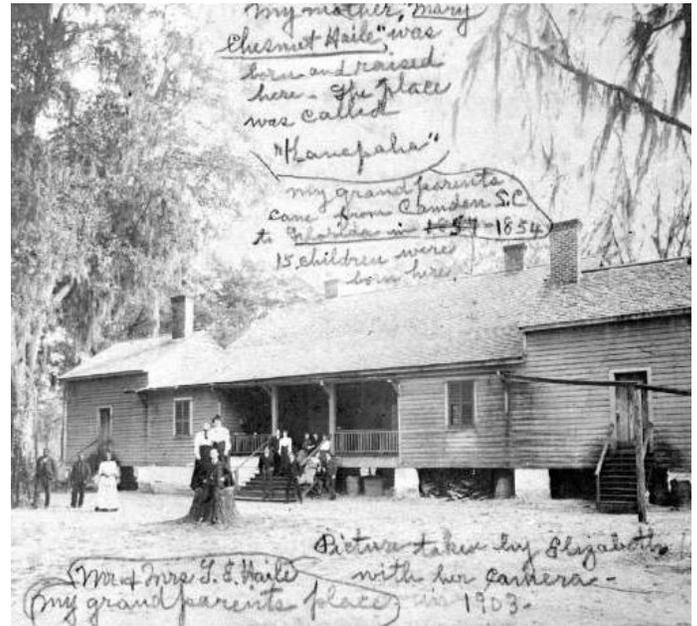 My mother, "Mary
Chesnut Haile", was
born and raised
here - The place
was called
"Kanapaha"
my grandparents
came from Camden S.C
to Florida in 1854
15 children were
born here
Picture taken by Elizabeth
with her camera -
in 1903 -
Mr & Mrs T. E. Haile
my grandparents place